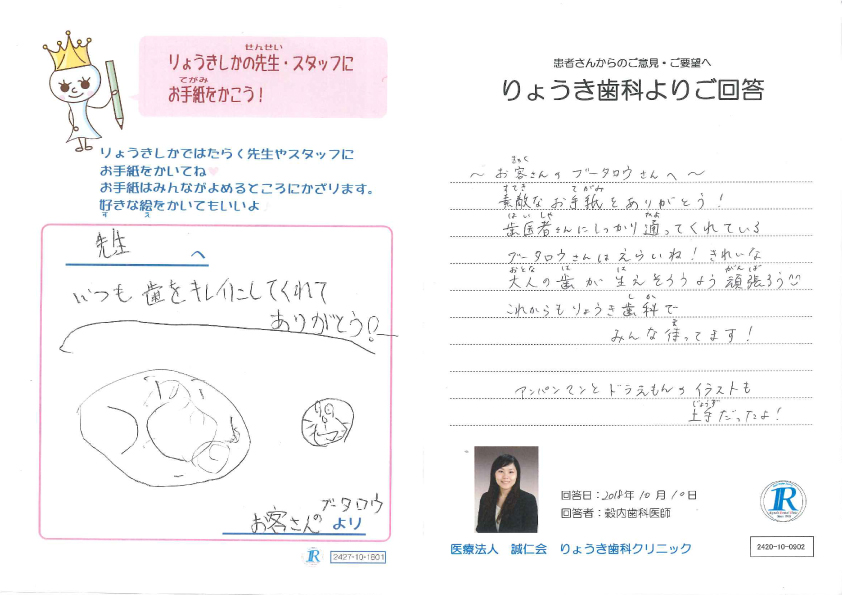 せんせい
りょうきしかの先生・スタッフに
てがみ
お手紙をかこう！
りょうきしかではたらく先生やスタッフに
お手紙をかいてね
お手紙はみんながよめるところにかざります。
好きな絵をかいてもいいよ
す え
先生 へ
いつも 歯をキレイにしてくれて
ありがとう!
ブータロウ
お客さんの より
R
2427-10-1601
患者さんからのご意見・ご要望へ
りょうき歯科よりご回答
きゃく
～ お客さんの ブータロウさんへ ～
すてき てがみ
素敵なお手紙をありがとう！
はいしゃ かよ
歯医者さんにしっかり通ってくれている
ブータロウさんはえらいね！きれいな
おとな は は がんば
大人の歯が生えそろうよう頑張ろう
しか
これからもりょうき歯科で
ま
みんな待ってます！
アンパンマンとドラえもんのイラストも
じょうず
上手だったよ！
回答日：2018年10月10日
回答者：穀内歯科医師
R
医療法人 誠仁会 りょうき歯科クリニック
2420-10-0902